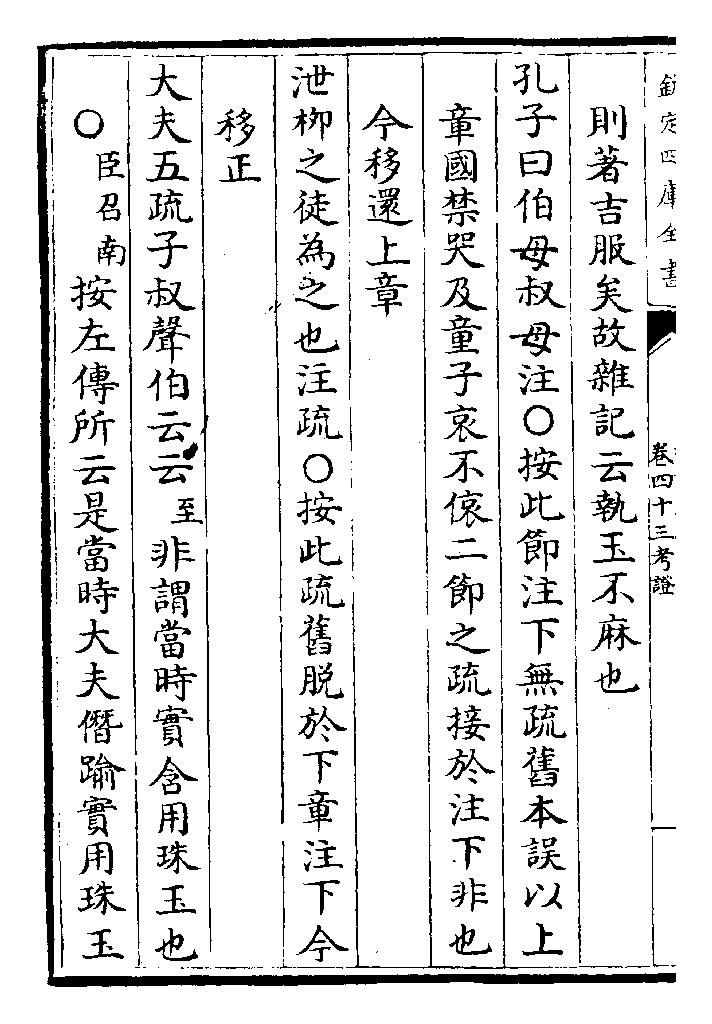 欽定四庫全書
卷四十三考證
則著吉服矣故雜記云執玉不麻也
孔子曰伯母叔母注○按此節注下無疏舊本誤以上
章國禁哭及童子哀不偯二節之疏接於注下非也
今移還上章
泄柳之徒為之也注疏○按此疏舊脱於下章注下今
移正
大夫五疏子叔聲伯云云至非謂當時實含用珠玉也
○臣召南按左傳所云是當時大夫僭踰實用珠玉